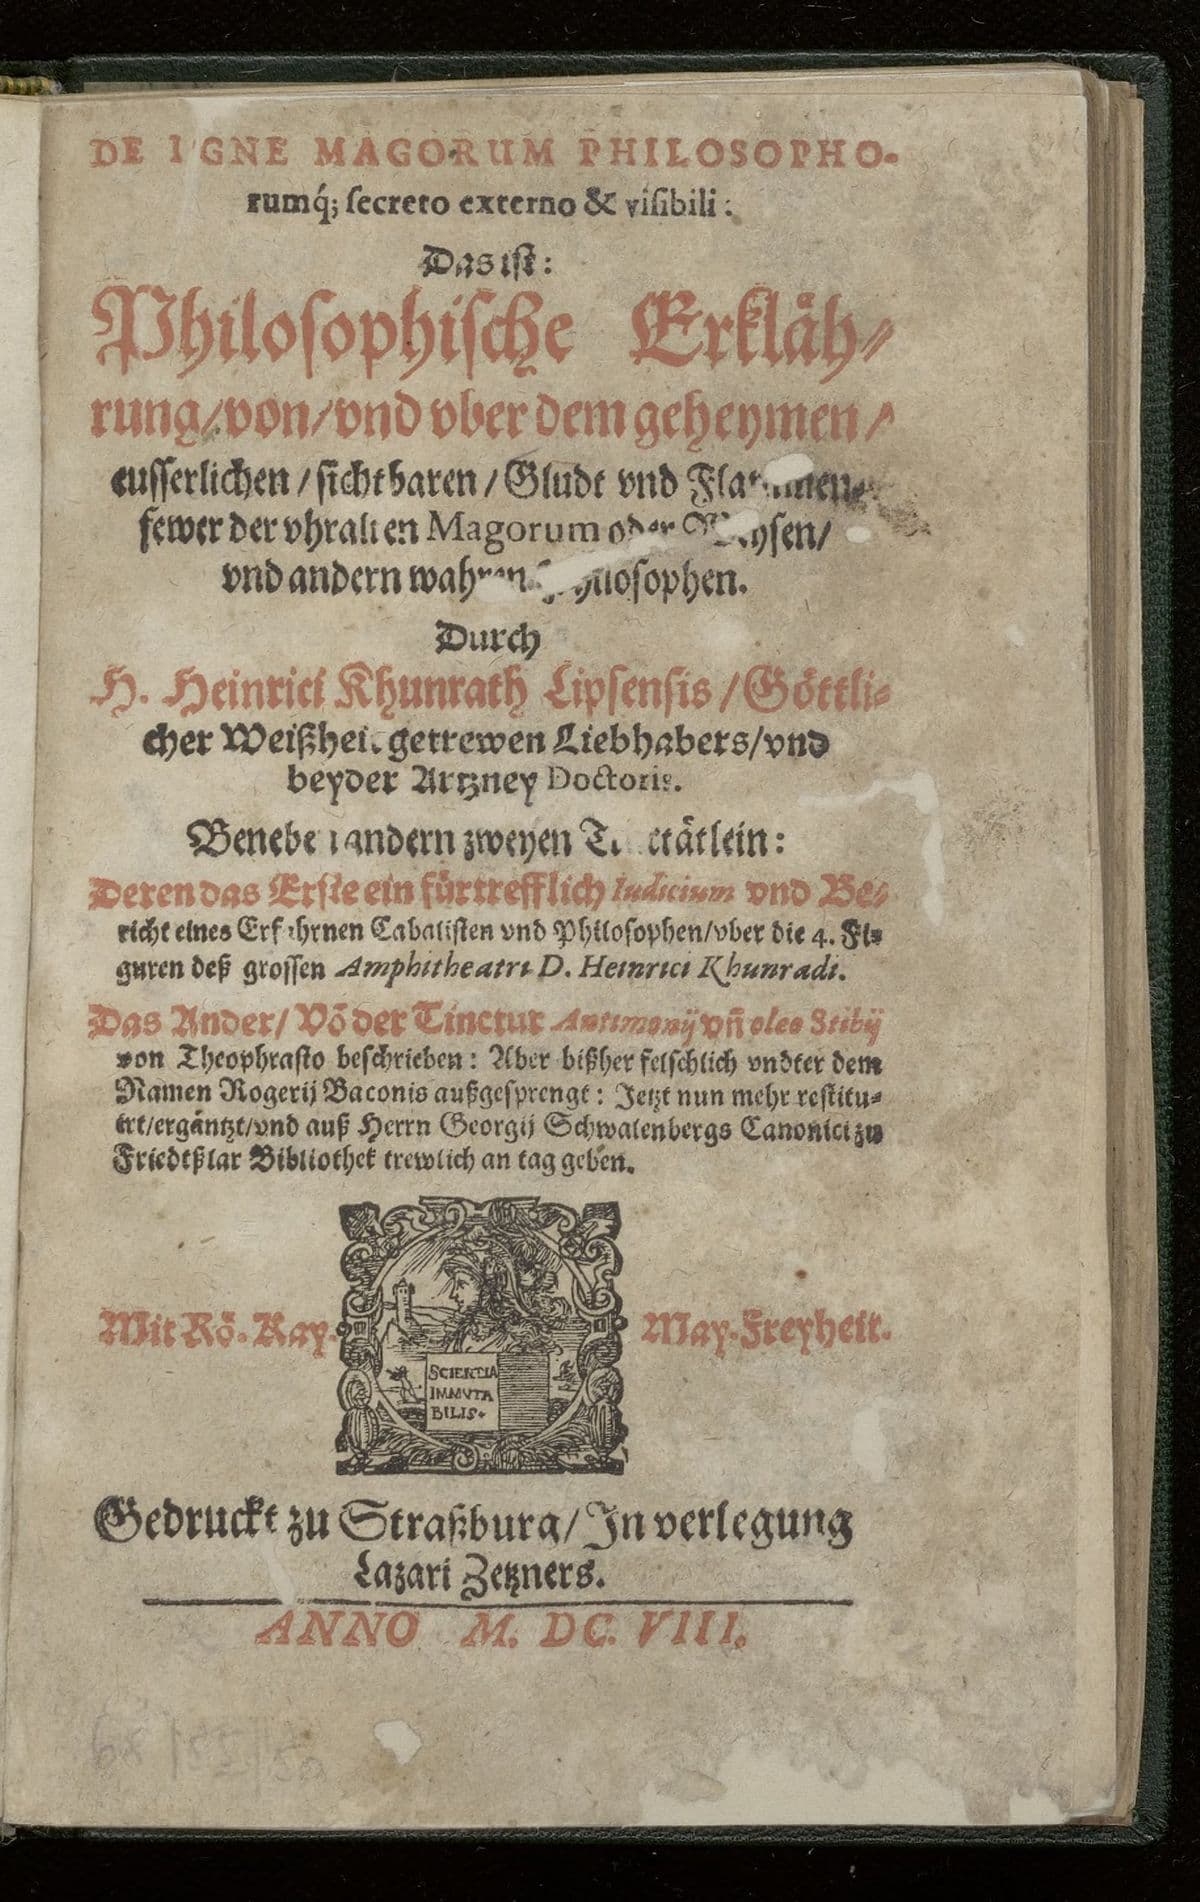 DE IGNE MAGORUM PHILOSOPHO-
rumq́; ſecreto externo & viſibili:
Das iſt:
Philoſophiſche Erklåh⸗
rung/von/vnd vber dem geheymen/
euſſerlichen/ſichtbaren/Gludt vnd
fewer der vhralten Magorum oder
vnd andern
Durch
H. Heinrici Khunrath Lipſenſis/Göttli⸗
cher Weißheit getrewen Liebhabers/vnd
beyder Artzney Doctoris.
Beneben andern zweyen
Deren das Erſte ein fürtrefflich Iudicium vnd Be⸗
richt eines Erfahrnen Cabaliſten vnd Philoſophen/vber die 4. Fi⸗
guren deß groſſen Amphitheatri D. Heinrici Khunradi.
Das Ander/ Võ der Tinctur Antimonij vñ oleo Stibij
von Theophraſto beſchrieben: Aber bißher felſchlich vndter dem
Namen Rogerij Baconis außgeſprengt: Jetzt nun mehr reſtitu⸗
irt/ergäntzt/vnd auß Herrn Georgij Schwalenbergs Canonici zu
Friedtßlar Bibliothek trewlich an tag geben.
Mit Rö. Kay. May. Freyheit.
SCIENTIA
IMMVTA
BILIS.
Gedruckt zu Straßburg/In verlegung
Lazari Zetzners.
ANNO M. DC. VIII.